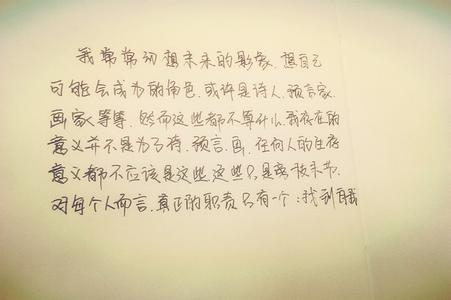 我常常幻想未来的影像、想自己
可能会成为的角色、或许是诗人、预言家、
画家等等、然而这些都不算什么、我存在的
意义并不是为了诗、预言、画、任何人的生存
意义都不应该是这些、这些只是旁枝末节、
对每个人而言、真正的职责只有一个：找到自我